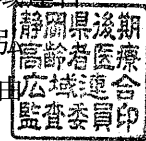 静岡県後期
高齢者医療
広域連合
監査委員印